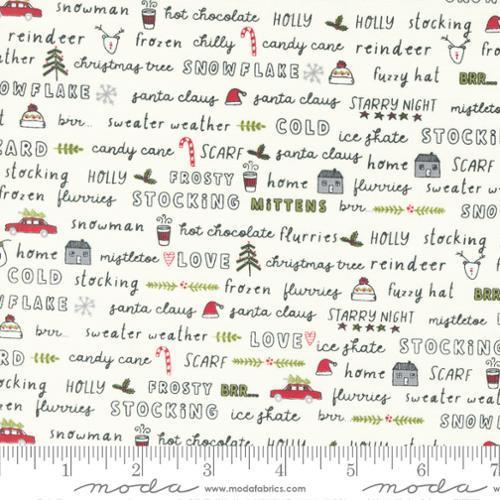 snowman hot chocolate HOLLY HOLLY stocking
reindeer frozen chilly candy cane reindeer
ther christmas tree SNOWFLAKE fuzzy hat BRR...
WFLAKE santa claus santa claus STARRY NIGHT mistletoe
brr... sweater weather COLD ice skate STOCKING
ZARD candy cane SCARF santa claus home SCARF
stocking HOLLY FROSTY home flurries sweater we
frozen flurries STOCKING MITTENS brr SNOW
snowman hot chocolate flurries HOLLY stocking
home mistletoe LOVE christmas tree reindeer
COLD stocking frozen flurries fuzzy hat BRR
WFLAKE santa claus santa claus STARRY NIGHT mistletoe
brr... sweater weather LOVE ice skate STOCKING
ARD candy cane SCARF home SCARF
stocking HOLLY FROSTY BRR... flurries sweater we
frozen flurries STOCKING ice skate brr... SNOW
snowman hot chocolate HOLLY HOLLY stocking
1 2 3 4 5 6 7
moda www.modafabrics.com moda